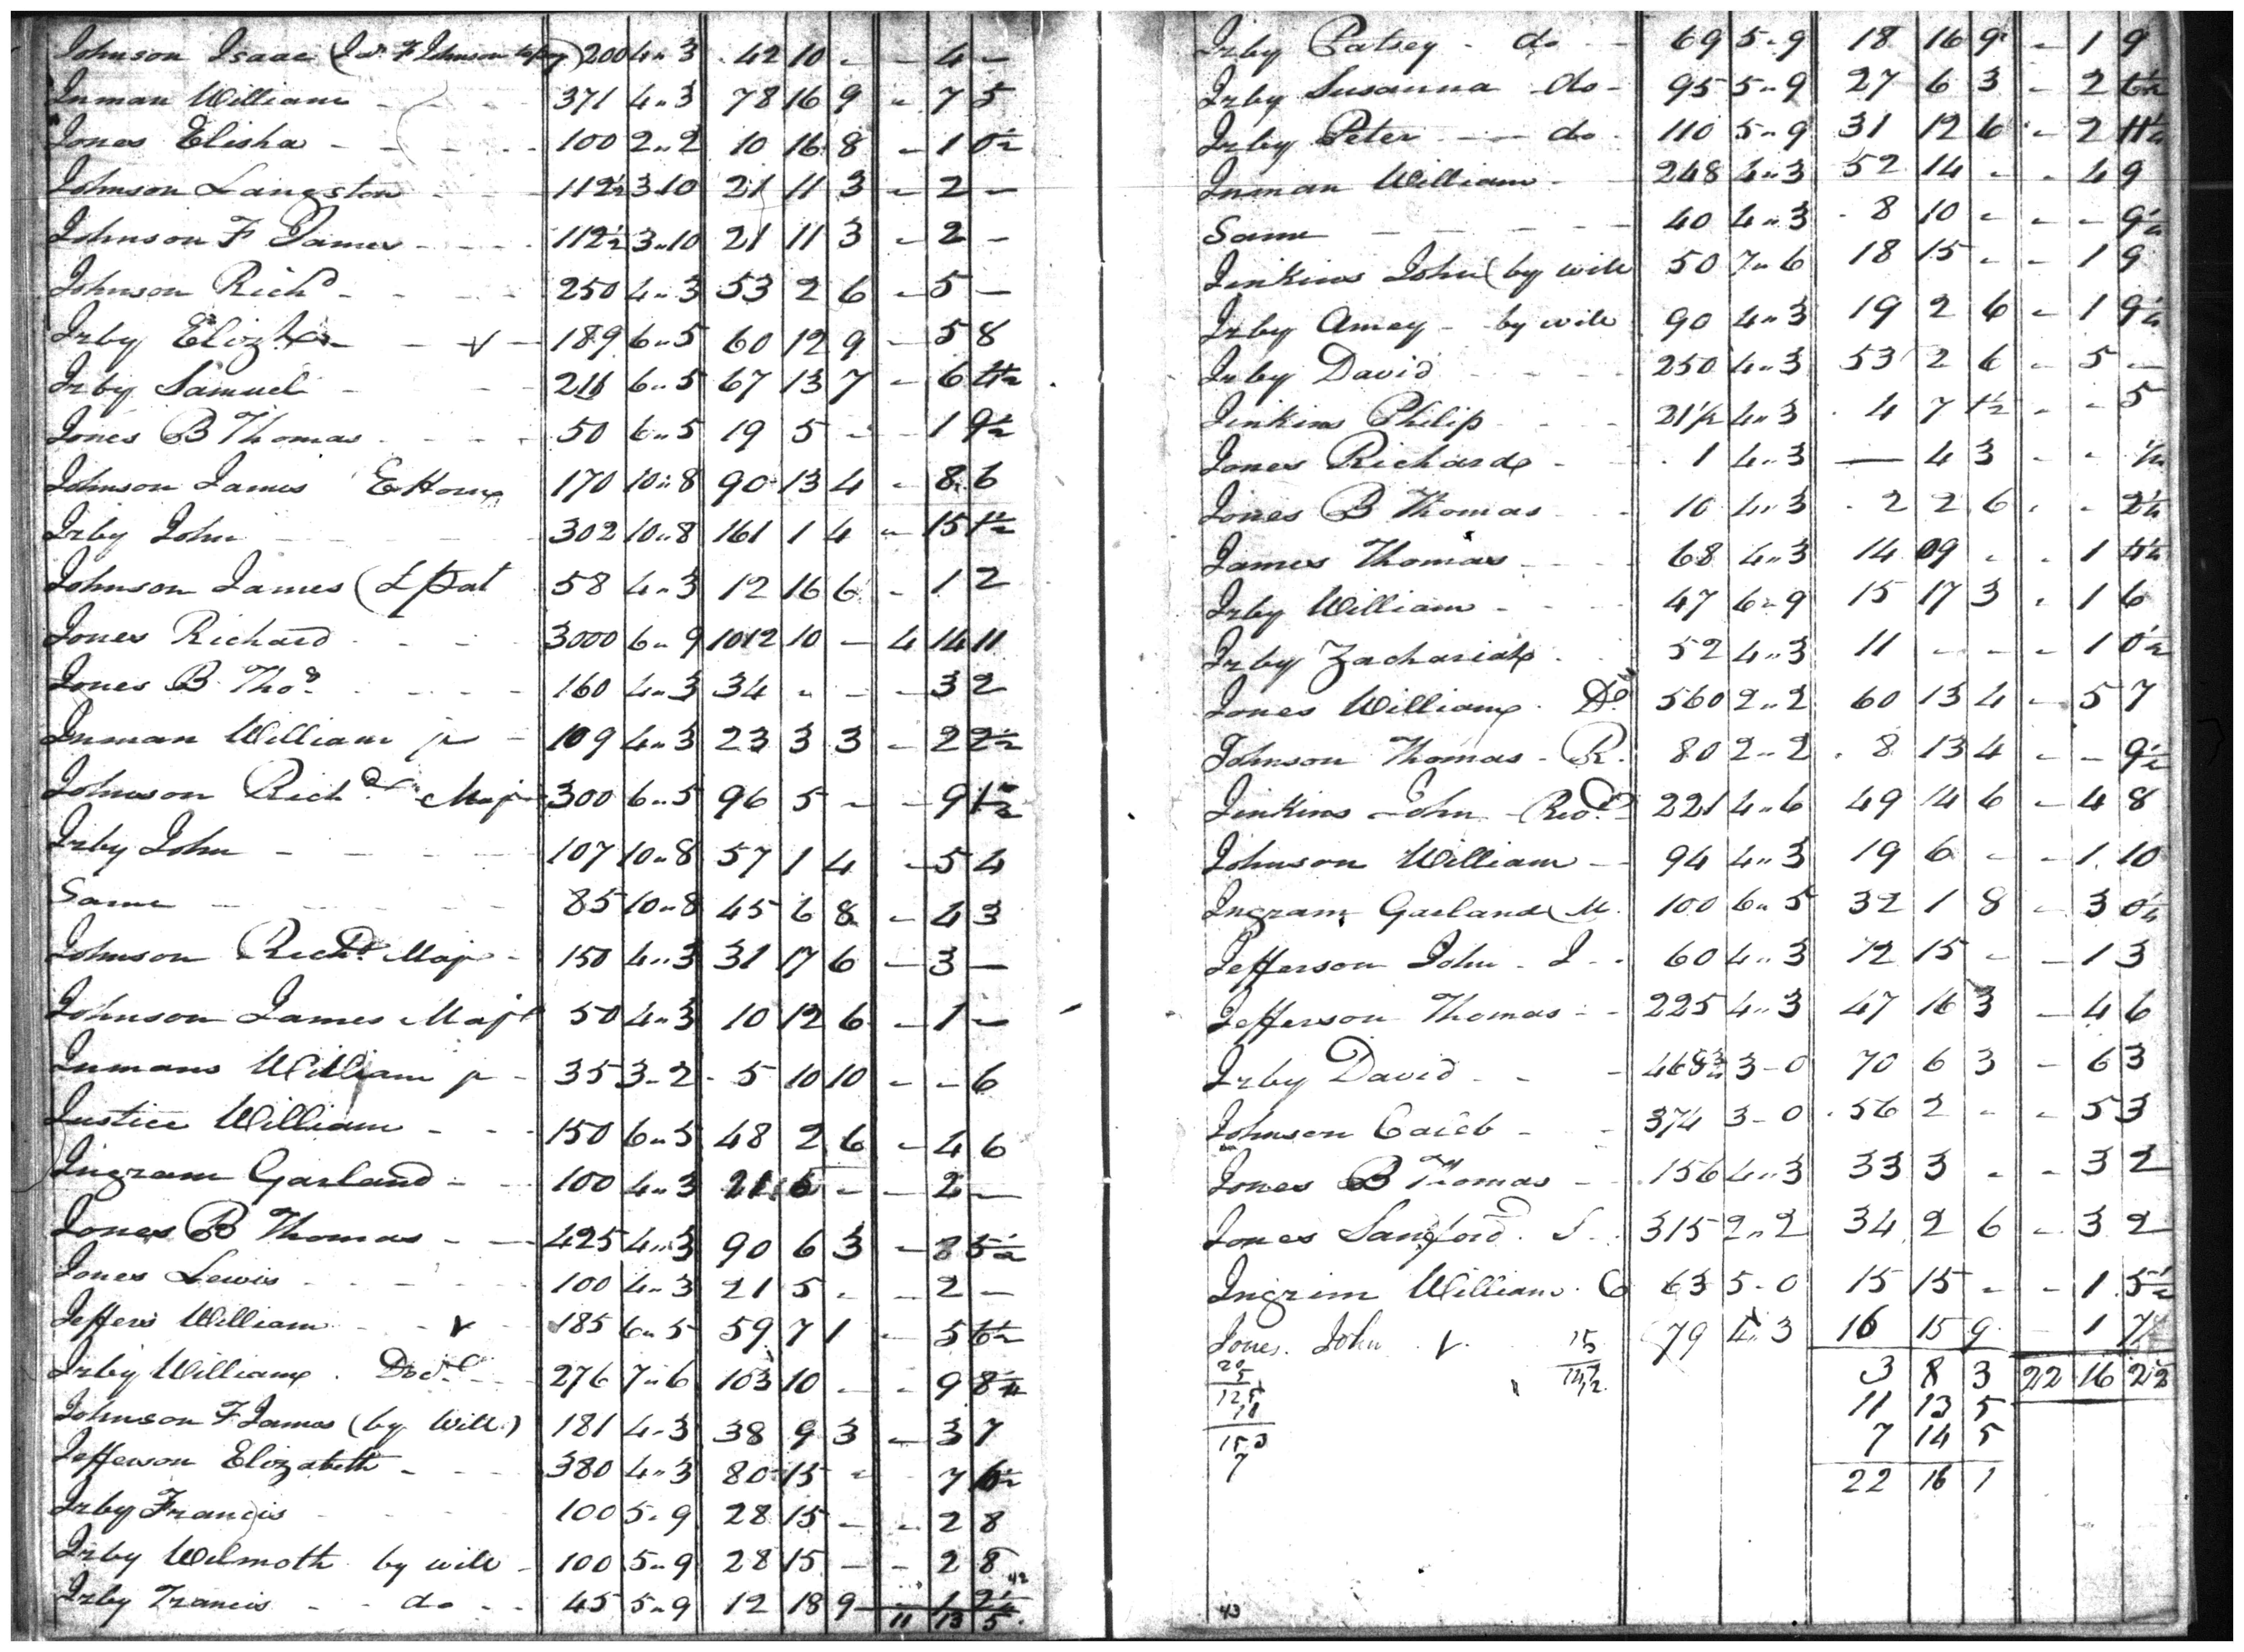 Johnson Isaac (Jas F Johnson to pay) 200 4"3 42 10 - - 4 -
Inman William - - - 371 4"3 78 16 9 " 7 5
Jones Elisha - - - - 100 2"2 10 16 8 - 1 0½
Johnson Langston - - 112½ 3"10 21 11 3 - 2 -
Johnson F James - - - - 112½ 3"10 21 11 3 - 2 -
Johnson Richd - - - - 250 4"3 53 2 6 - 5 -
Irby Elizth - - v - 189 6"5 60 12 9 - 5 8
Irby Samuel - - - 211 6"5 67 13 7 - 6 4½
Jones B Thomas - - - - 50 6"5 19 5 - - 1 9½
Johnson James E Home 170 10"8 90 13 4 - 8 6
Irby John - - - - - 302 10"8 161 1 4 " 15 1½
Johnson James (L Pat 58 4"3 12 16 6 - 1 2
Jones Richard - - - 3000 6"9 1012 10 - 4 14 11
Jones B Thos - - - - 160 4"3 34 " - - 3 2
Inman William jr - 109 4"3 23 3 3 - 2 2½
Johnson Richd Maj 300 6"5 96 5 - - 9 1½
Irby John - - - - 107 10"8 57 1 4 - 5 4
Same - - - - - 85 10"8 45 6 8 - 4 3
Johnson Richd Maj - 150 4"3 31 17 6 - 3 -
Johnson James Majr 50 4"3 10 12 6 - 1 -
Inmans William jr - 35 3-2 - 5 10 10 - - 6
Justice William - - - 150 6"5 48 2 6 - 4 6
Ingram Garland - - 100 4"3 21 5 - - 2 -
Jones B Thomas - - 425 4"3 90 6 3 - 8 5½
Jones Lewis - - - - - 100 4"3 21 5 - - 2 -
Jeffers William - - v 185 6"5 59 7 1 - 5 6½
Irby William . Docr - 276 7"6 103 10 - - 9 8¼
Johnson F James (by Will) 181 4"3 38 9 3 - 3 7
Jefferson Elizabeth - - - 380 4"3 80 15 - 7 6½
Irby Francis - - - 100 5"9 28 15 - - 2 8
Irby Wilmoth by will - 100 5"9 28 15 - - 2 8
42
Irby Francis - - do - - 45 5"9 12 18 9 - 1 2½
11 13 5
Irby Patsey - do - - 69 5"9 18 16 9 - 1 9
Irby Susanna do - 95 5"9 27 6 3 - 2 6½
Irby Peter - - do - 110 5"9 31 12 6 - 2 11¼
Inman William - - 248 4"3 52 14 - - 4 9
Same - - - - - - 40 4"3 - 8 10 - - - 9¼
Jinkins John (by will 50 7"6 18 15 - - 1 9
Irby Amey - by will 90 4"3 19 2 6 - 1 9¼
Irby David - - - - 250 4"3 53 2 6 - 5 -
Jinkins Philip - - - 21½ 4"3 - 4 7 1½ - - 5
Jones Richard - - . 1 4"3 - 4 3 - - ½
Jones B Thomas - - - 10 4"3 - 2 2 6 - - 2¼
James Thomas - - - 68 4"3 14 09 - - 1 4¼
Irby William - - - - 47 6"9 15 17 3 - 1 6
Irby Zachariah - - - 52 4"3 11 - - - 1 0½
Jones William . Do 560 2"2 60 13 4 - 5 7
Johnson Thomas - R. 80 2"2 - 8 13 4 - - 9½
Jinkins John - Red 221 4"6 49 14 6 - 4 8
Johnson William - - 94 4"3 19 6 - - 1 10
Ingram Garland M. 100 6"5 32 1 8 - 3 0¼
Jefferson John - J - - 60 4"3 12 15 - - 1 3
Jefferson Thomas - - 225 4"3 47 16 3 - 4 6
Irby David - - - 468¾ 3-0 70 6 3 - 6 3
Johnson Caleb - - 374 3-0 - 56 2 - - 5 3
Jones B Thomas - - 156 4"3 33 3 - - 3 2
Jones Sanford . S - 315 2"2 34 2 6 - 3 2
Ingrim William . C 63 5-0 15 15 - - 1 5½
Jones John . v . 79 4"3 16 15 9 - 1 7
3 8 3 22 16 2½
11 13 5
7 14 5
22 16 1
43